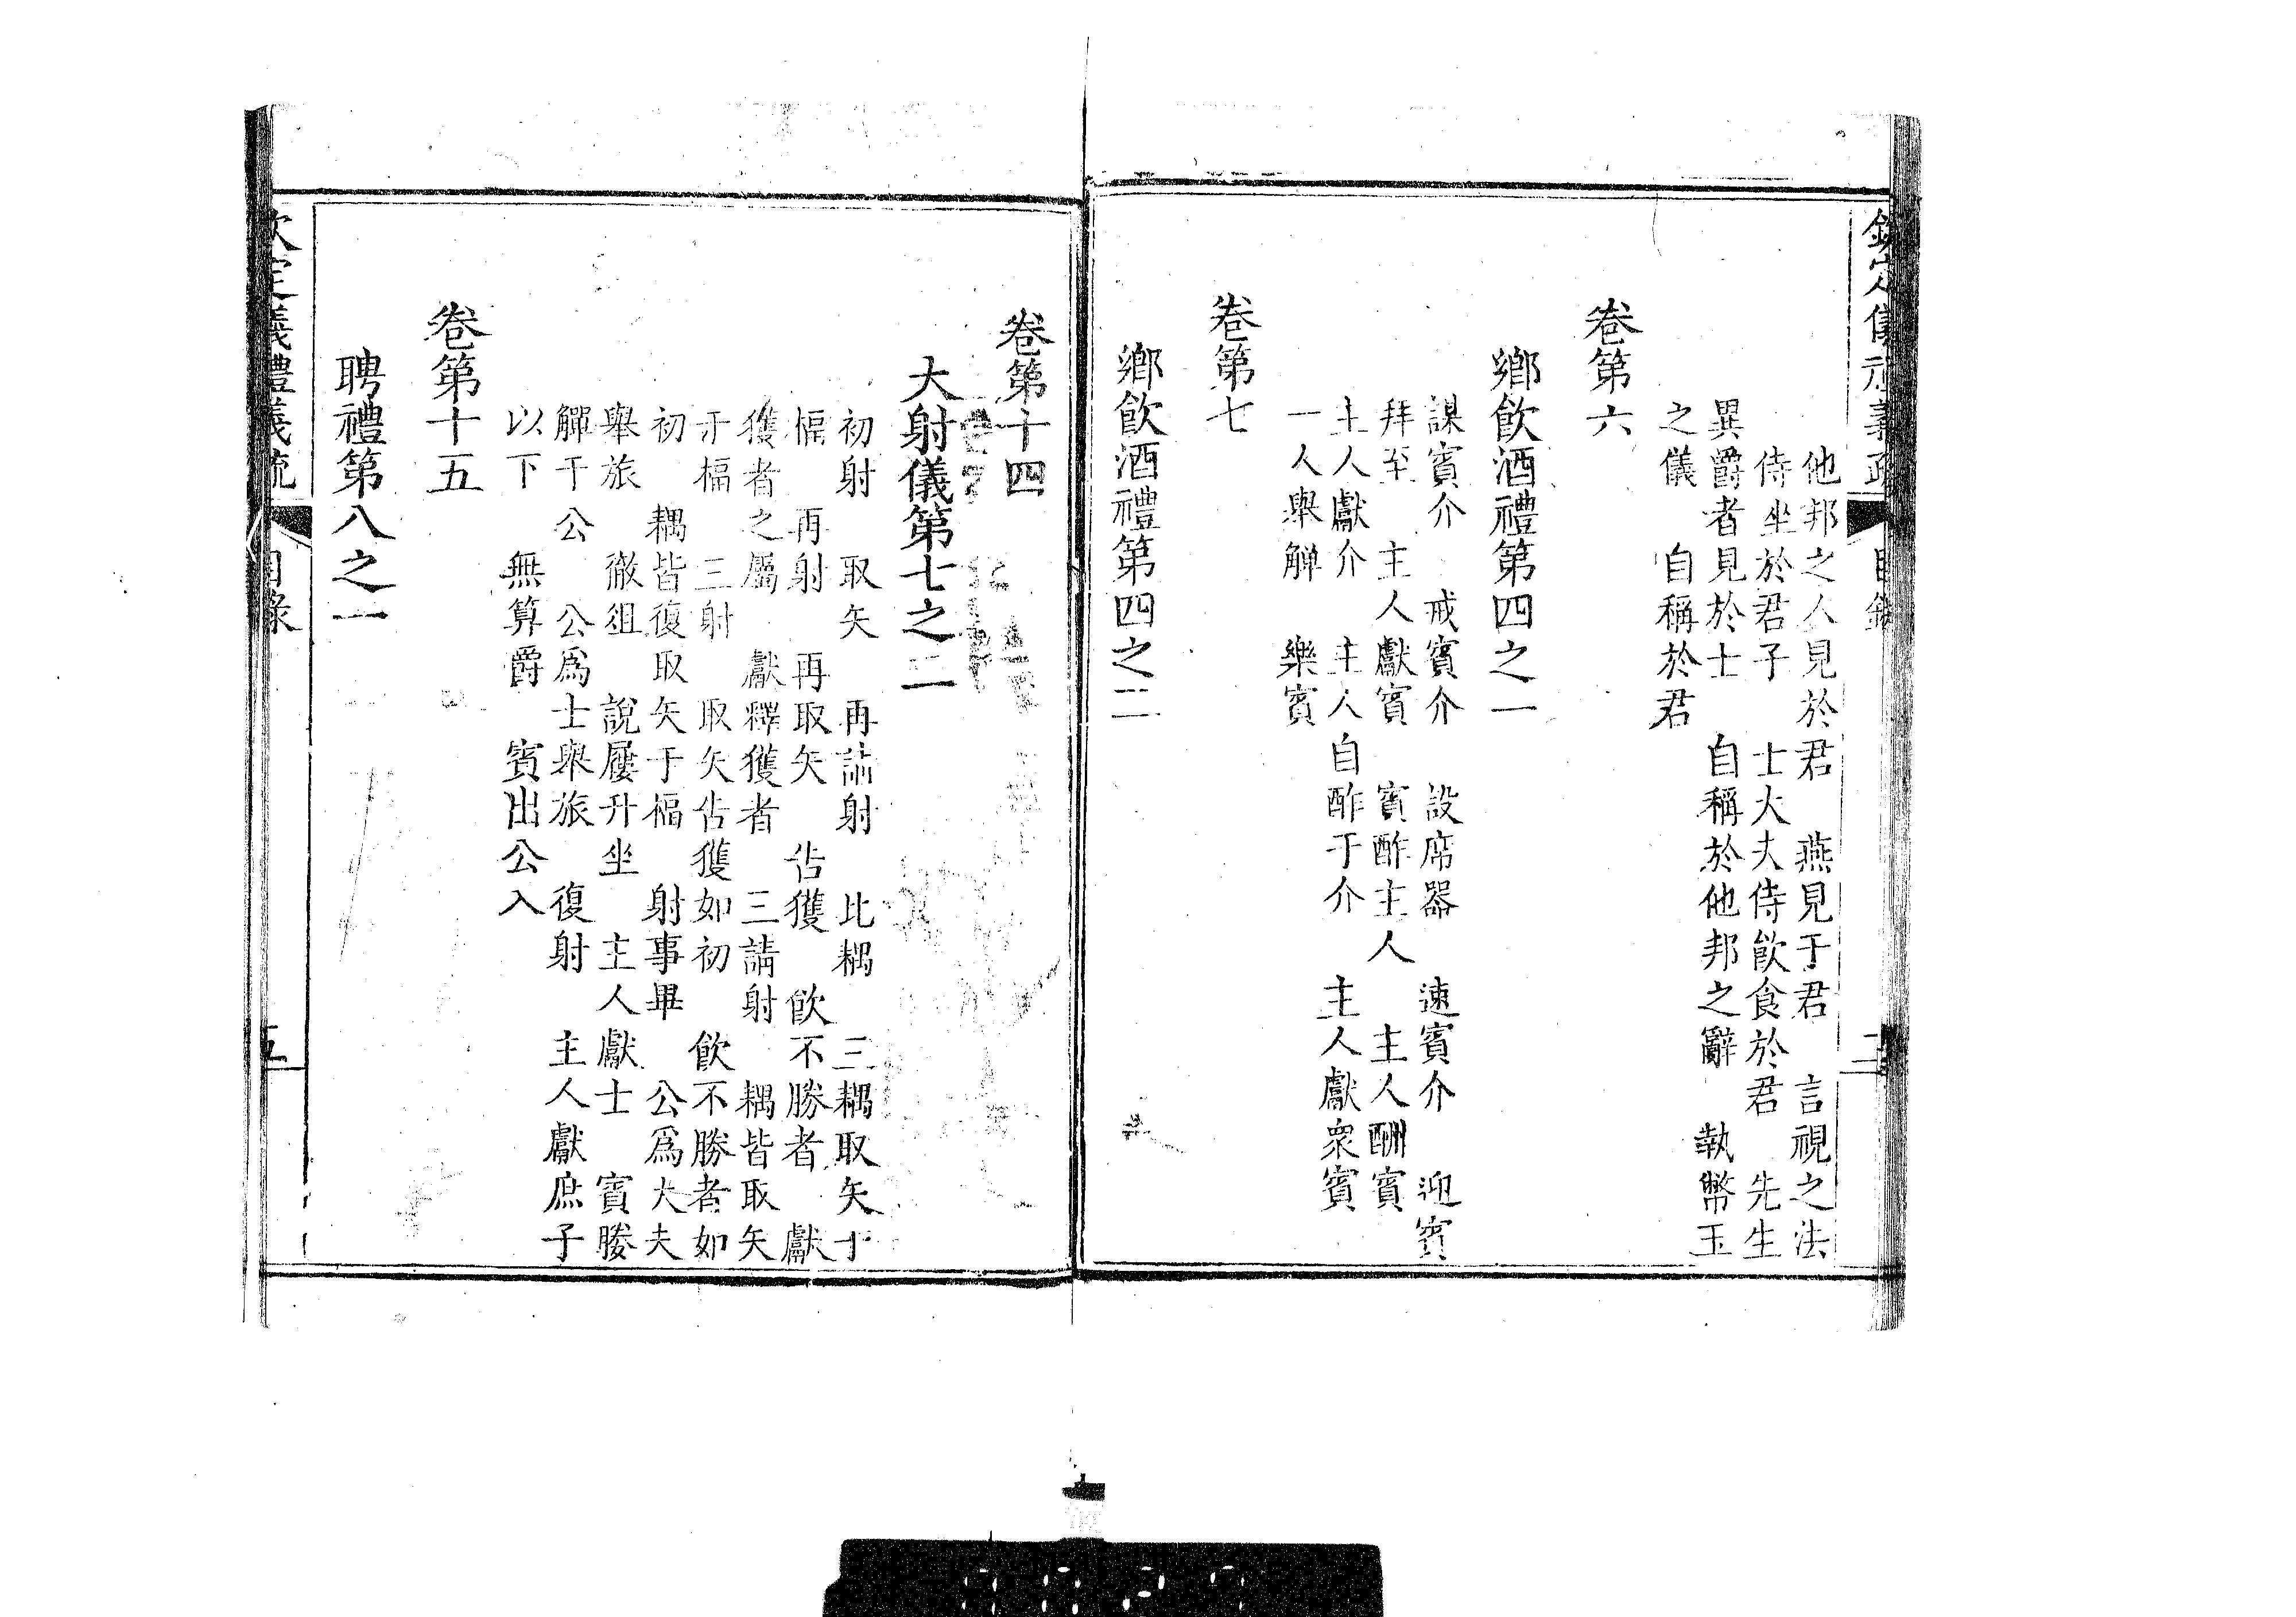 欽定儀禮義疏 目錄 二
他邦之人見於君 燕見于君 言視之法
侍坐於君子 士大夫侍飲食於君 先生
異爵者見於士 自稱於他邦之辭 執幣玉
之儀 自稱於君
卷第六
鄉飲酒禮第四之一
謀賓介 戒賓介 設席器 速賓介 迎賓
拜至 主人獻賓 賓酢主人 主人酬賓
主人獻介 主人自酢于介 主人獻衆賓
一人舉觶 樂賓
卷第七
鄉飲酒禮第四之二
卷第十四
大射儀第七之二
初射 取矢 再請射 比耦 三耦取矢于
楅 再射 再取矢 佔獲 飲不勝者 獻
獲者之屬 獻釋獲者 三請射 耦皆取矢
于楅 三射 取矢佔獲如初 飲不勝者如
初 耦皆復取矢于楅 射事畢 公爲大夫
舉旅 徹俎 說屨升坐 主人獻士 賓媵
觶于公 公爲士舉旅 復射 主人獻庶子
以下 無算爵 賓出公入
卷第十五
聘禮第八之一
欽定儀禮義疏 目錄 五